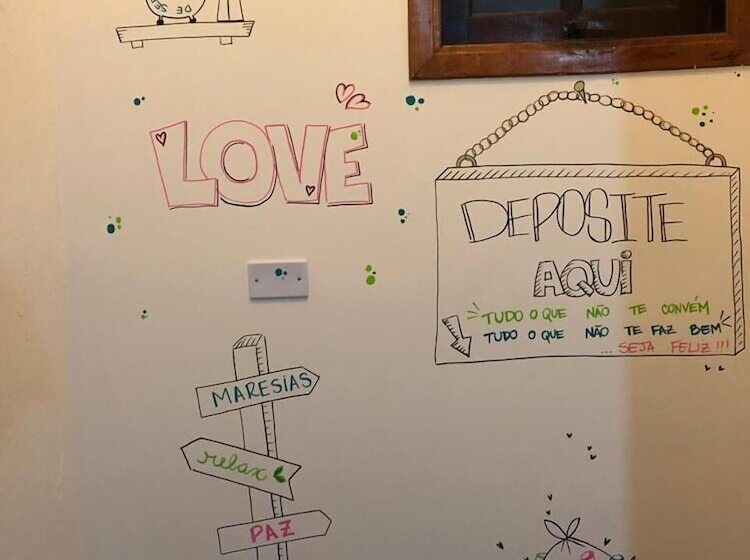 DE SE
LOVE
DEPOSITE
AQUI
TUDO O QUE NÃO TE CONVÉM
TUDO O QUE NÃO TE FAZ BEM
... SEJA FELIZ!!!
MARESIAS
relax
PAZ